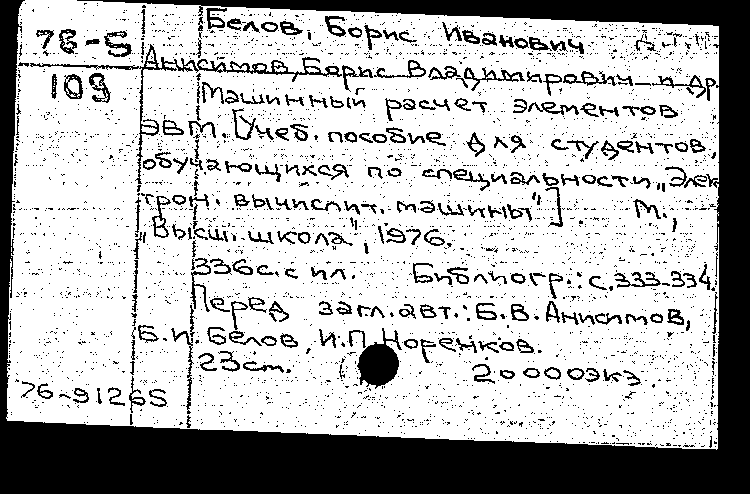 Белов, Борис Иванович
76-5
Анисимов, Борис Владимирович и др.
109
Машинный расчет элементов
ЭВМ. [Учеб. пособие для студентов,
обучающихся по специальности „Элек
трон. вычислит. машины"]. М.,
„Высш. школа", 1976.
336с. с ил. Библиогр.: с. 333-334.
Перед загл. авт.: Б.В. Анисимов,
Б.И. Белов, И.П. Норенков.
23 см. 20000экз.
76-91265